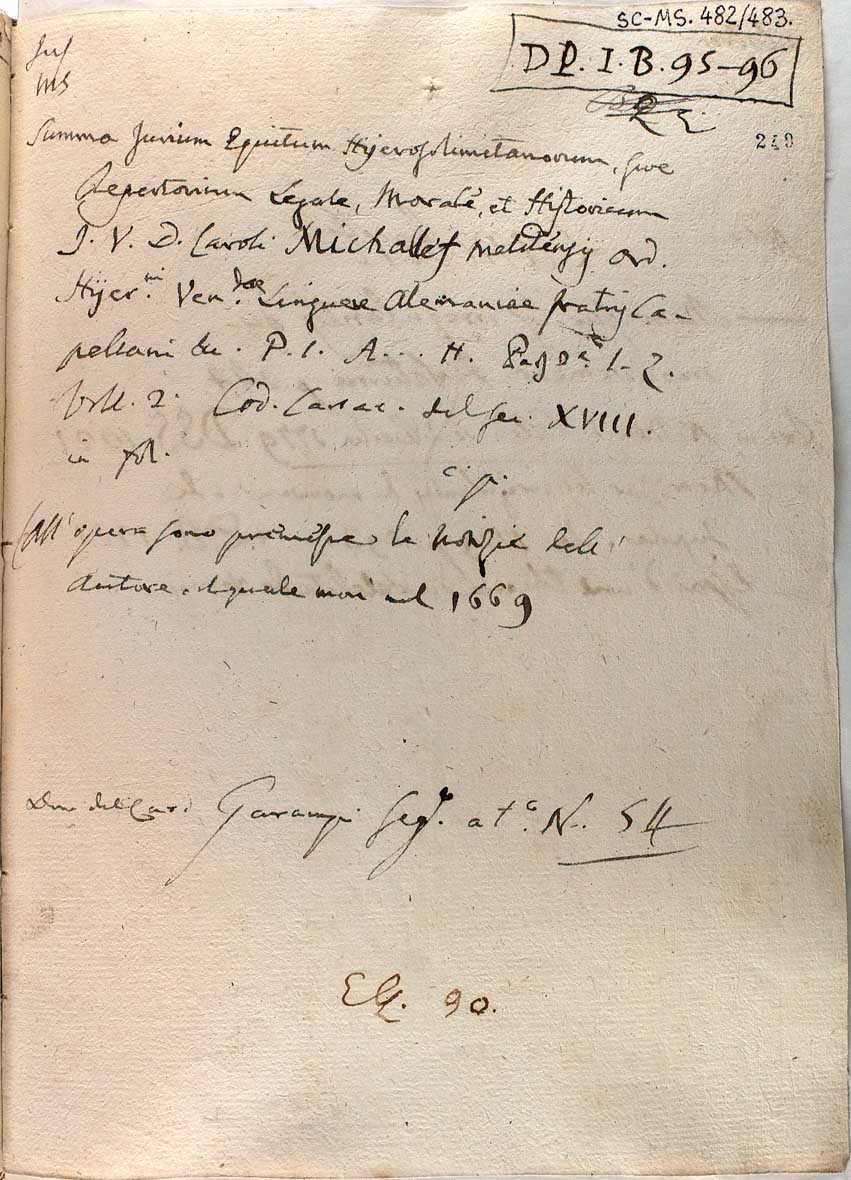 SC-MS. 482/483.
D P. I. B. 95-96
Jus
MS
249
Summa Jurium Equitum Hyerosolimitanorum, sive
Repertorium Legale, Morale, et Historicum
J. V. D. Caroli Michallef melitensis ord.
Hyer.mi Ven.dae Linguae Alemaniae fratris Ca-
pellani &c. P. 1. A... H. Pars 2.a I-Z.
Voll. 2. Cod. Cartac. del sec. XVIII.
in fol.
c. p.
All' opera sono premesse le notizie dell'
Autore, il quale morì nel 1669
Dono del Card. Garampi Seg. at.o N. 54
90.